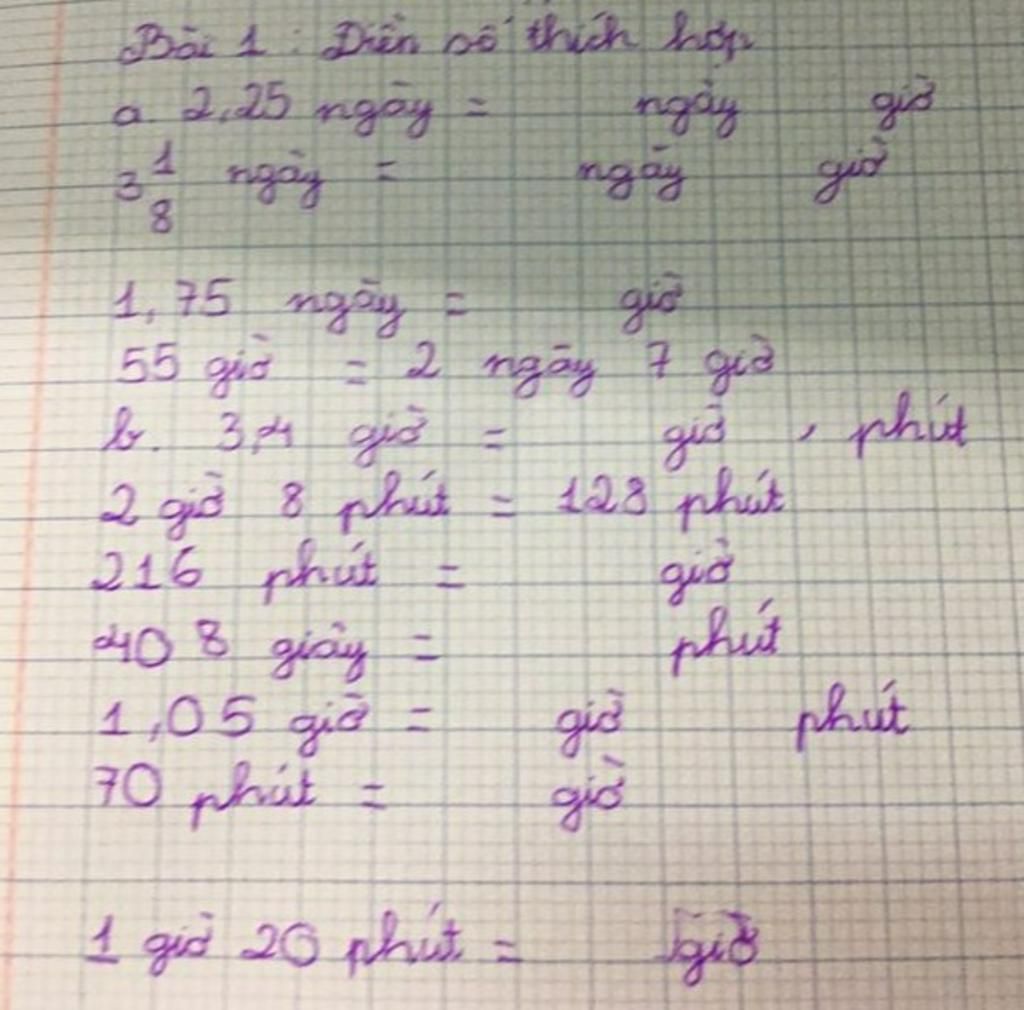 Bài 1 : Điền số thích hợp
a. 2,25 ngày = ngày giờ
3 1/8 ngày = ngày giờ
1,75 ngày = giờ
55 giờ = 2 ngày 7 giờ
b. 3,4 giờ = giờ , phút
2 giờ 8 phút = 128 phút
216 phút = giờ
408 giây = phút
1,05 giờ = giờ phút
70 phút = giờ
1 giờ 20 phút = giờ